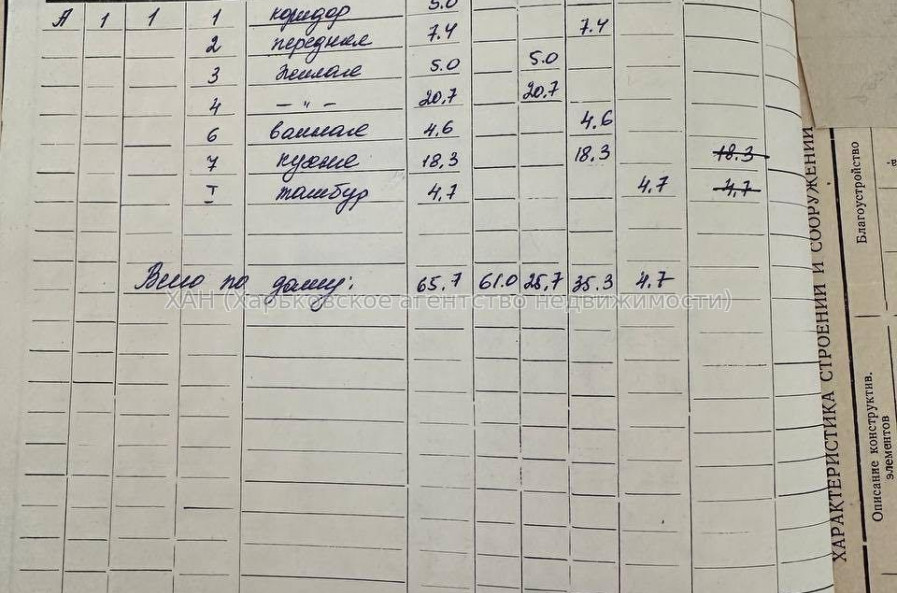 А 1 1 1 коридор 5.0
2 передняя 7.4 7.4
3 жилая 5.0 5.0
4 – " – 20,7 20,7
6 ванная 4.6 4.6
7 кухня 18.3 18.3 18.3
I тамбур 4,7 4.7 4,7
Всего по дому: 65.7 61.0 25,7 35.3 4.7
ХАН (Харьковское агентство недвижимости)
ХАРАКТЕРИСТИКА СТРОЕНИЙ И СООРУЖЕНИЙ
Благоустройство
Описание конструктив.
элементов